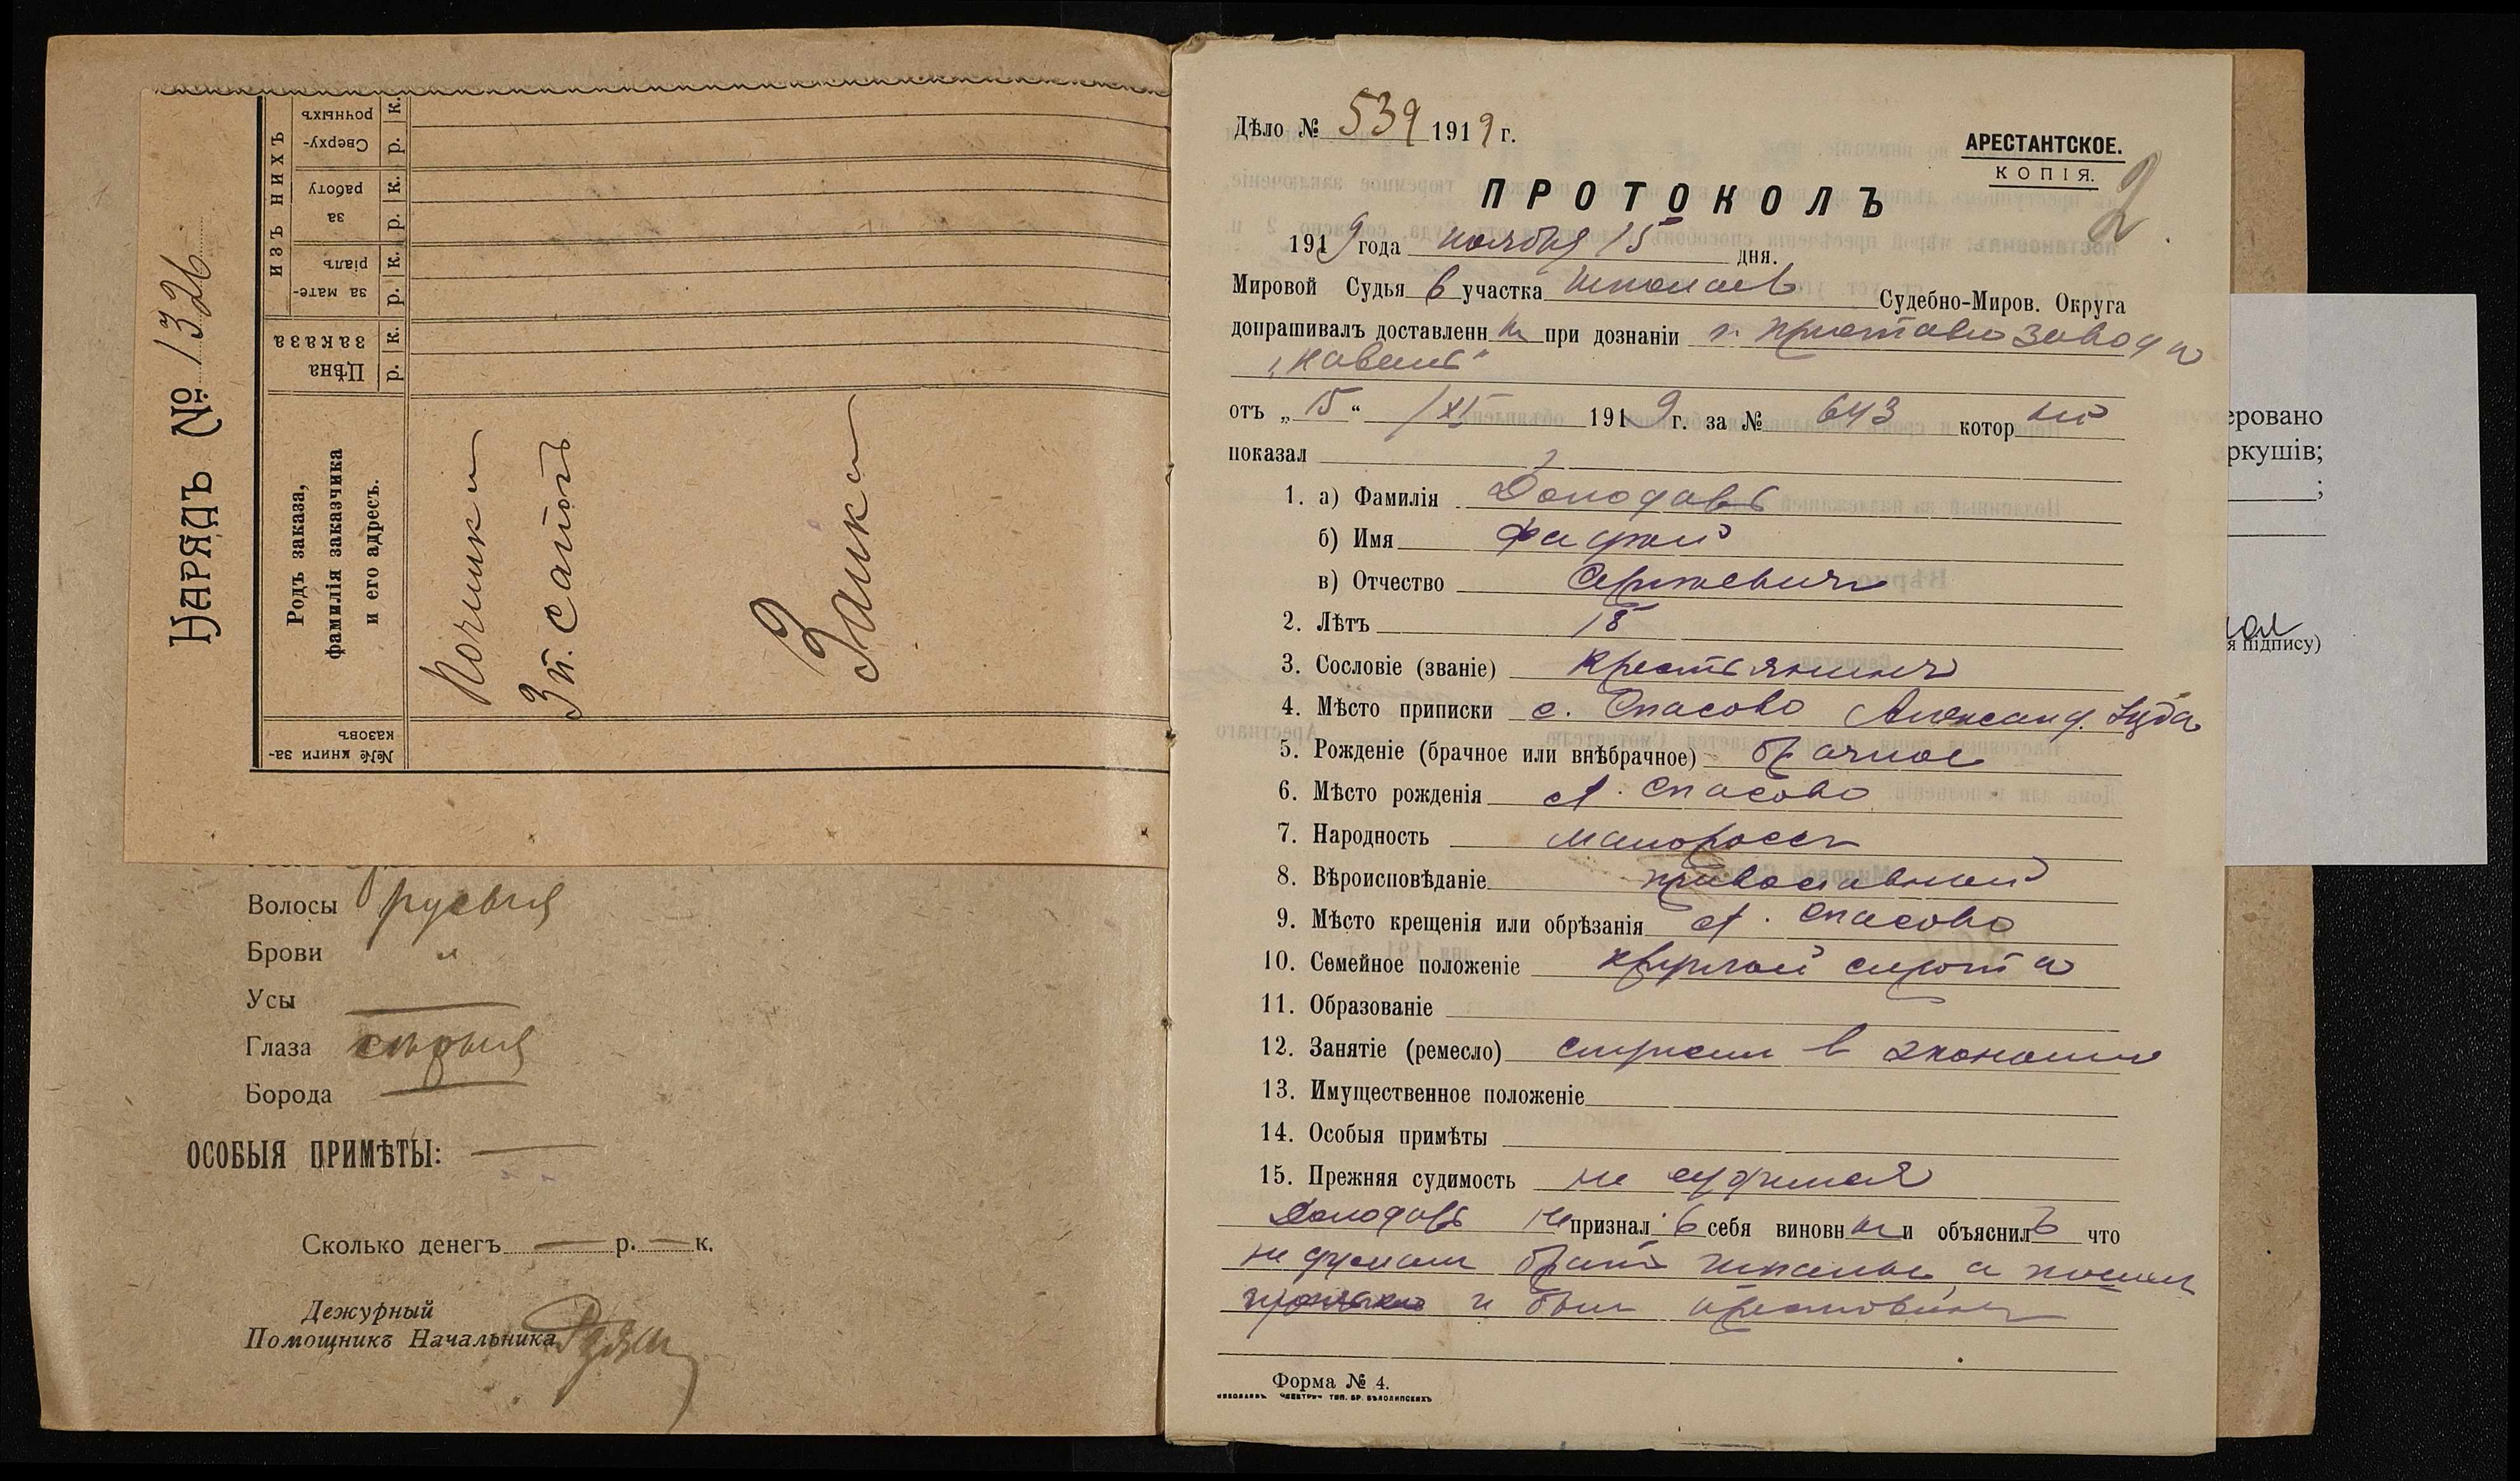 НАРЯДЪ № 1326
№№ книги за-
казовъ
Родъ заказа,
фамилія заказчика
и его адресъ.
Цѣна
заказа
р. к.
ИЗЪ НИХЪ
за мате-
ріалъ
р. к.
за
работу
р. к.
Сверху-
рочныхъ
р. к.
Починка
3 п. сапогъ
Заика
Волосы русыя
Брови "
Усы —
Глаза сѣрыя
Борода —
ОСОБЫЯ ПРИМѢТЫ: —
Сколько денегъ — р. — к.
Дежурный
Помощникъ Начальника
Дѣло № 539 1919 г.
АРЕСТАНТСКОЕ.
КОПІЯ.
2
ПРОТОКОЛЪ
1919 года ноября 15 дня.
Мировой Судья 6 участка Николаев Судебно-Миров. Округа
допрашивалъ доставленн при дознаніи г. Пристава завода
„Наваль“
отъ „15“ /XI 1919 г. за № 643 который
показал
1. а) Фамилія
б) Имя
в) Отчество Сергѣевичъ
2. Лѣтъ 18
3. Сословіе (званіе) Крестьянинъ
4. Мѣсто приписки с. Спасово Александ. уѣзда
5. Рожденіе (брачное или внѣбрачное) брачное
6. Мѣсто рожденія с. Спасово
7. Народность малороссъ
8. Вѣроисповѣданіе православный
9. Мѣсто крещенія или обрѣзанія с. Спасово
10. Семейное положеніе круглый сирота
11. Образованіе
12. Занятіе (ремесло) служил в экономии
13. Имущественное положеніе
14. Особыя примѣты
15. Прежняя судимость не судился
не признал себя виновн и объяснилъ что
не думал брать а пошел
и был арестован
Форма № 4.
НИКОЛАЕВЪ. ЭЛЕКТРИЧ. ТИП. БР. БѢЛОЛИПСКИХЪ
еровано
ркушів;
;
я підпису)